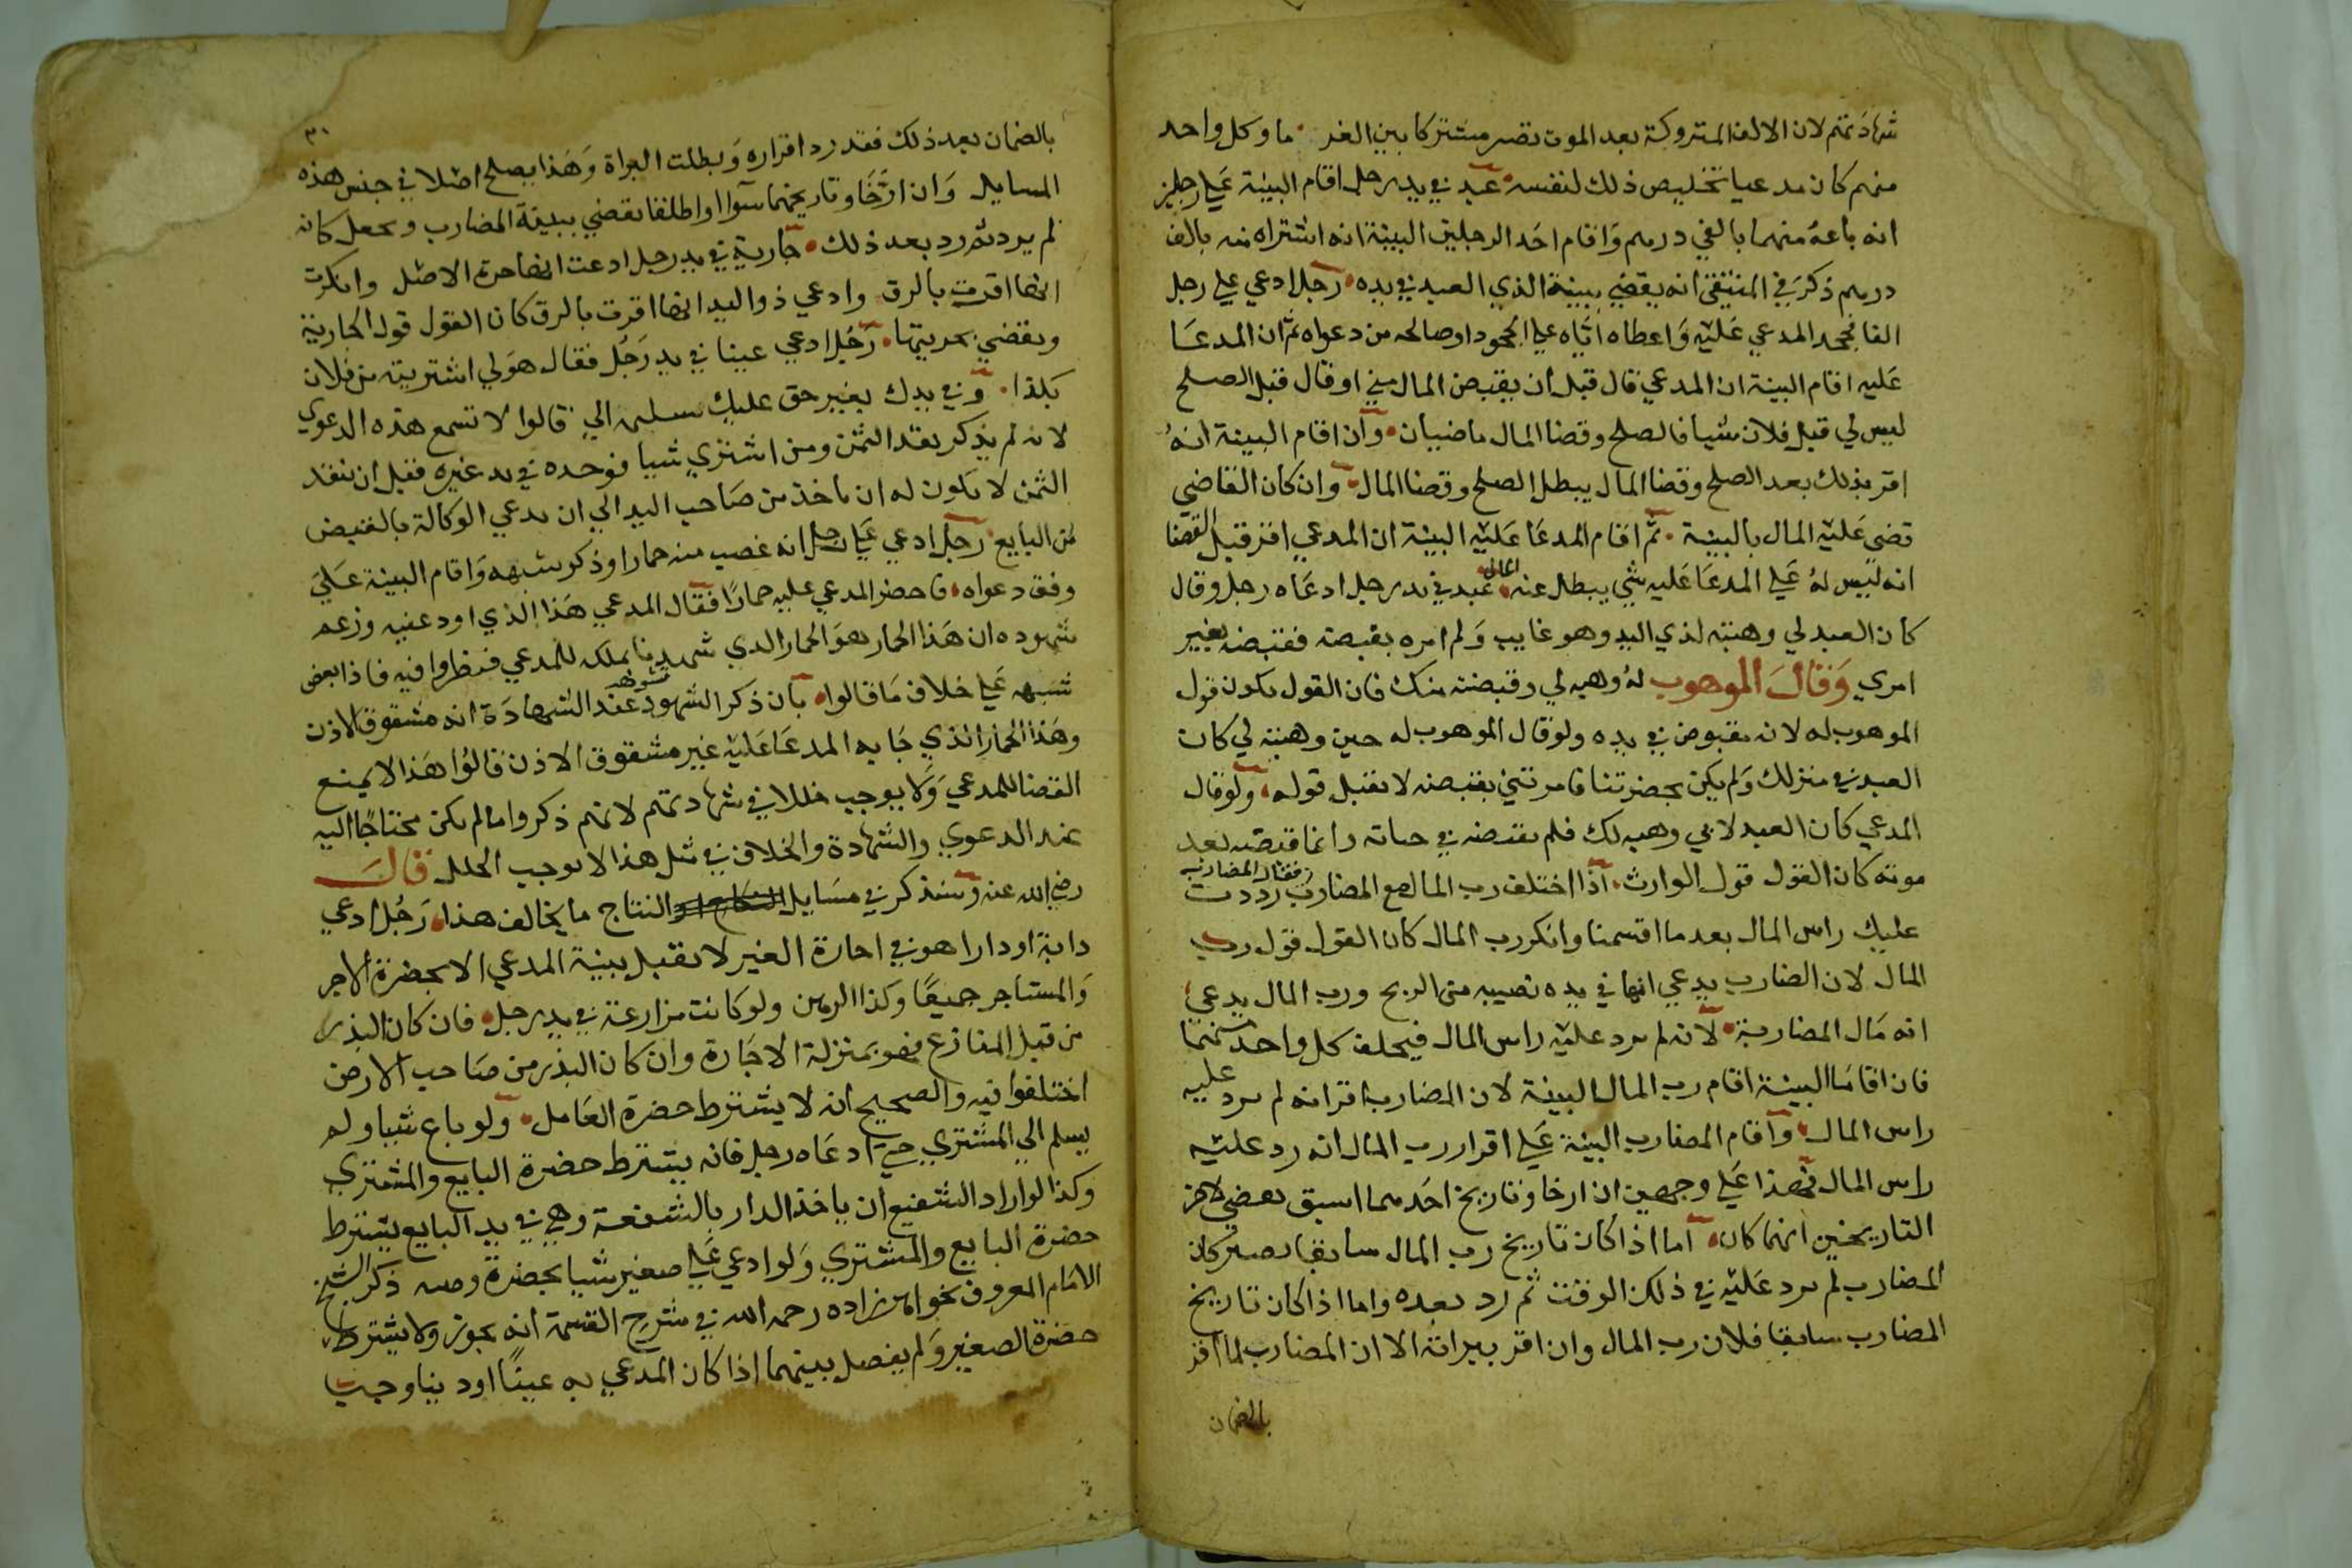 شهادتهم لان الالف المتروكة بعد الموت تصير مشتركا بين الغر ما وكل واحد
منهم كان مدعيا تخليص ذلك لنفسه عبد في يد رجل اقام البينة علي رجلين
انه باعه منهما بالفي درهم واقام احد الرجلين البينة انه اشتراه منه بالف
درهم ذكر في المنتقي انه يقضي ببينة الذي العبد في يده رجل ادعي علي رجل
الفا فجحد المدعي عليه واعطاه اياه علي الجحود او صالحه من دعواه ثم ان المدعا
عليه اقام البينة ان المدعي قال قبل ان يقبض المال مني او قال قبل الصلح
ليس لي قبل فلان شيا فالصلح وقضا المال ماضيان وان اقام البينة انه
اقر بذلك بعد الصلح وقضا المال يبطل الصلح وقضا المال وان كان القاضي
قضي عليه المال بالبينة ثم اقام المدعا عليه البينة ان المدعي اقر قبل القضا
انه ليس له علي المدعا عليه شي يبطل عنه المال عبد في يد رجل ادعاه رجل وقال
كان العبد لي وهبته لذي اليد وهو غايب ولم امره بقبضه فقبضه بغير
امري وقال الموهوب له وهبه لي وقبضته منك فان القول يكون قول
الموهوب له لانه مقبوض في يده ولو قال الموهوب له حين وهبته لي كان
العبد في منزلك ولم يكن بحضرتنا فامرتني بقبضه لا يقبل قوله ولو قال
المدعي كان العبد لابي وهبه لك فلم تقبضه في حياته وانما قبضته بعد
موته كان القول قول الوارث اذا اختلف رب المال مع المضارب فقال المضارب رددت
عليك راس المال بعد ما اقتسمنا وانكر رب المال كان القول قول رب
المال لان الضارب يدعي انها في يده نصيبه من الربح ورب المال يدعي
انه مال المضاربة لانه لم يرد عليه راس المال فيحلف كل واحد منهما
فان اقاما البينة اقام رب المال البينة لان المضارب اقر انه لم يرد عليه
راس المال واقام المضارب البينة علي اقرار رب المال انه رد عليه
راس المال فهذا علي وجهين ان ارخا وتاريخ احدهما اسبق يقضي لاخر
التاريخين ايهما كان اما اذا كان تاريخ رب المال سابقا يصير كان
المضارب لم يرد عليه في ذلك الوقت ثم رد بعده واما اذا كان تاريخ
المضارب سابقا فلان رب المال وان اقر ببراته الا ان المضارب لما اقر
بالضمان
٣١
بالضمان بعد ذلك فقد رد اقراره وبطلت البراة وهذا يصلح اصلا في جنس هذه
المسايل وان ارخا وتاريخهما سوا او اطلقا يقضي ببينة المضارب ويجعل كانه
لم يرد ثم رد بعد ذلك جارية في يد رجل ادعت انها حرة الاصل وانكرت
انها اقرت بالرق وادعي ذو اليد انها اقرت بالرق كان القول قول الجارية
ويقضي بحريتها رجل ادعي عينا في يد رجل فقال هو لي اشتريته من فلان
بكذا وفي يدك بغير حق عليك تسليمه الي قالوا لا تسمع هذه الدعوي
لانه لم يذكر نقد الثمن ومن اشتري شيا فوجده في يد غيره فقبل ان ينقد
الثمن لا يكون له ان ياخذ من صاحب اليد الي ان يدعي الوكالة بالقبض
من البايع رجل ادعي علي رجل انه غصب منه حمارا وذكر شبهه واقام البينة علي
وفق دعواه فاحضر المدعي عليه حمارا فقال المدعي هذا الذي اودعنيه وزعم
شهوده ان هذا الحمار هو الحمار الذي شهدنا بملكه للمدعي فنظروا فيه فاذا بعض
شبهه علي خلاف ما قالوا بان ذكر الشهود عند الشهادة انه مشقوق الاذن
وهذا الحمار الذي جا به المدعا عليه غير مشقوق الاذن قالوا هذا لا يمنع
القضا للمدعي ولا يوجب خللا في شهادتهم لانهم ذكروا ما لم يكن محتاجا اليه
عند الدعوي والشهادة والخلاف في مثل هذا لا يوجب الخلل قال
رضي الله عنه وسنذكر في مسايل النتاج ما يخالف هذا رجل ادعي
دابة او دارا هو في اجارة الغير لا تقبل بينة المدعي الا بحضرة الاجر
والمستاجر جميعا وكذا الرهن ولو كانت مزارعة في يد رجل فان كان البذر
من قبل المزارع فهو بمنزلة الاجارة وان كان البذر من صاحب الارض
اختلفوا فيه والصحيح انه لا يشترط حضرة العامل ولو باع شيا ولم
يسلم الي المشتري حتي ادعاه رجل فانه يشترط حضرة البايع والمشتري
وكذا لو اراد الشفيع ان ياخذ الدار بالشفعة وهي في يد البايع يشترط
حضرة البايع والمشتري ولو ادعي علي صغير شيا بحضرة وصيه ذكر الشيخ
الامام المعروف بخواهر زاده رحمه الله في شرح القسمة انه يجوز ولا يشترط
حضرة الصغير ولم يفصل بينهما اذا كان المدعي به عينا او دينا وجب